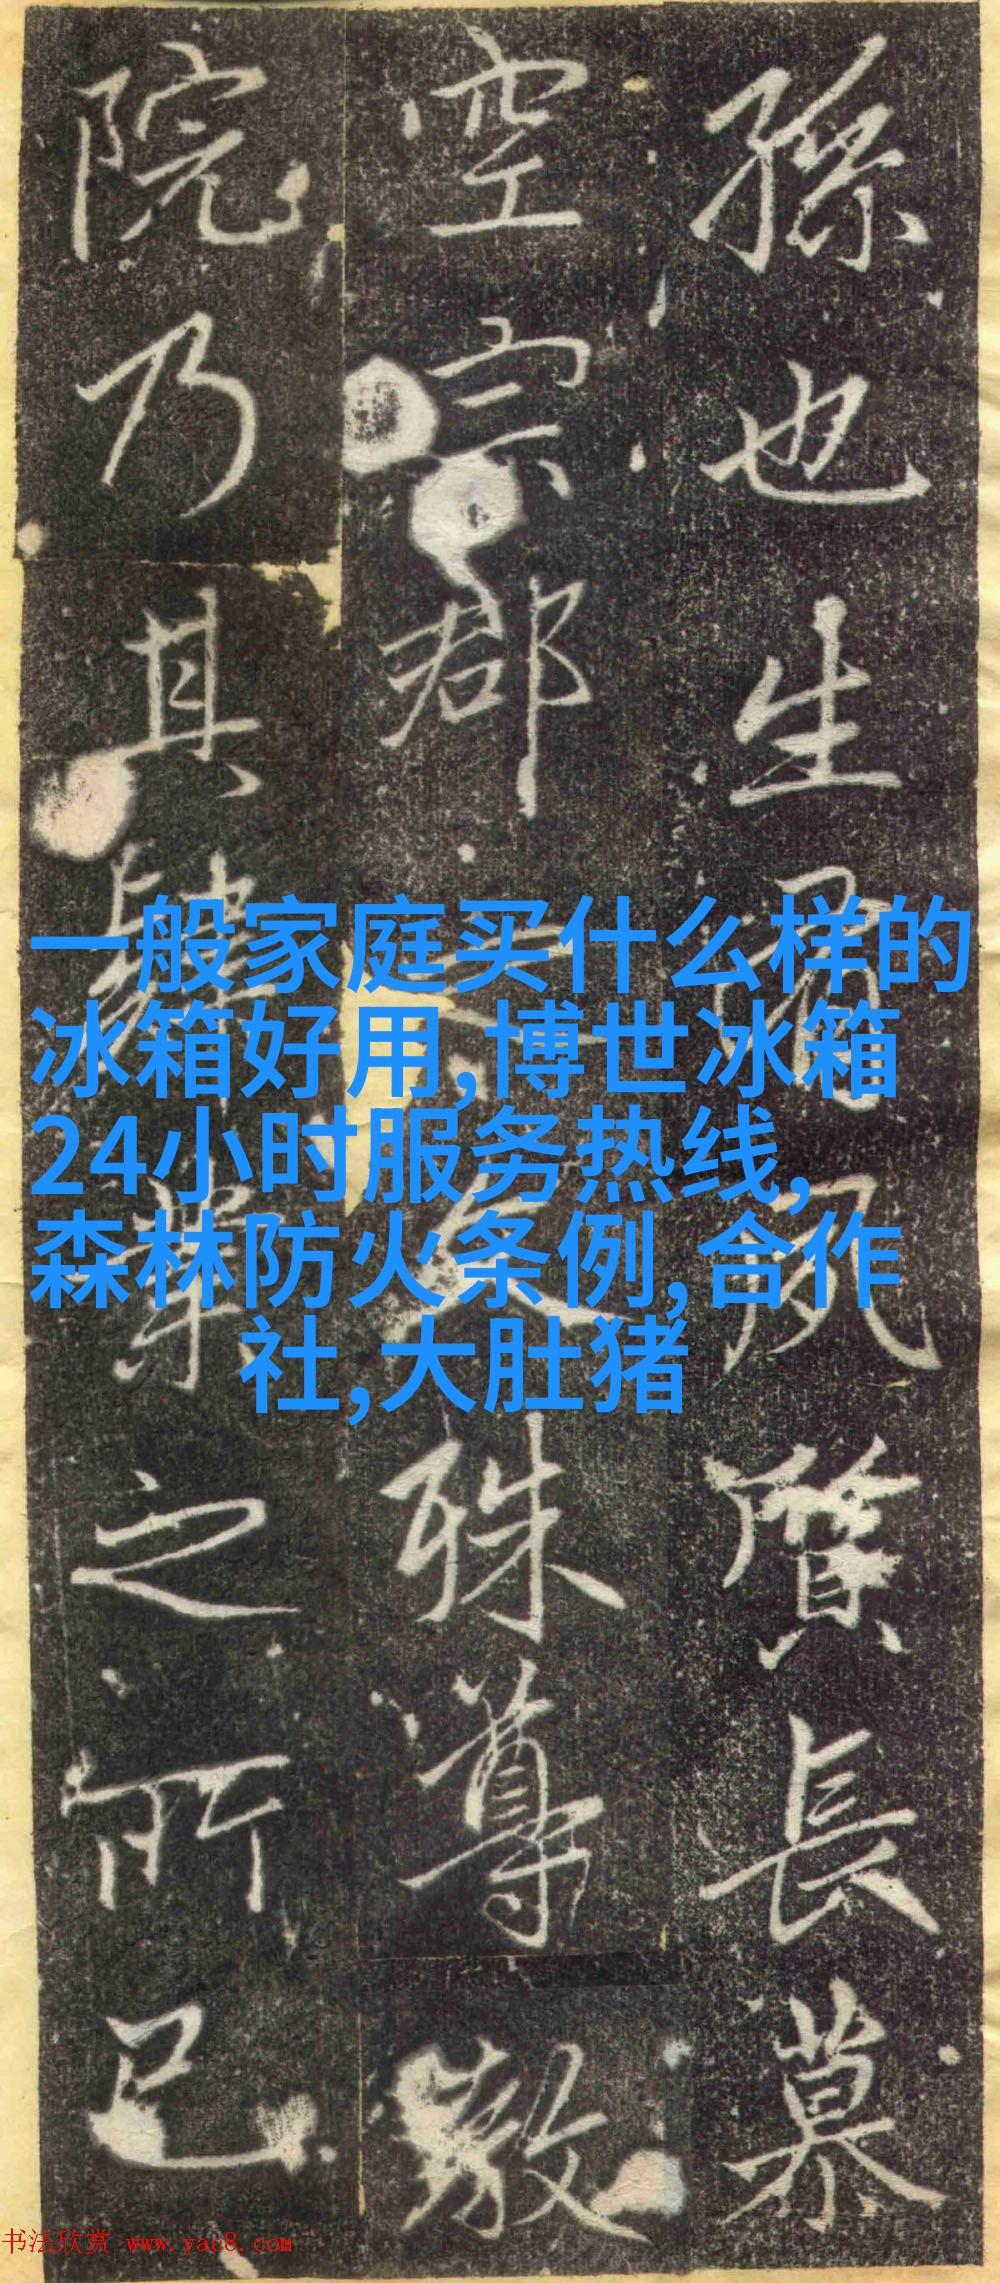 孫也生夙質長慕
空宗郡殊尊敬
院乃其肆業之所已
一般家庭买什么样的
冰箱好用,博世冰箱
24小时服务热线,
森林防火条例,合作
社,大肚猪
书法欣赏 www.yac8.com